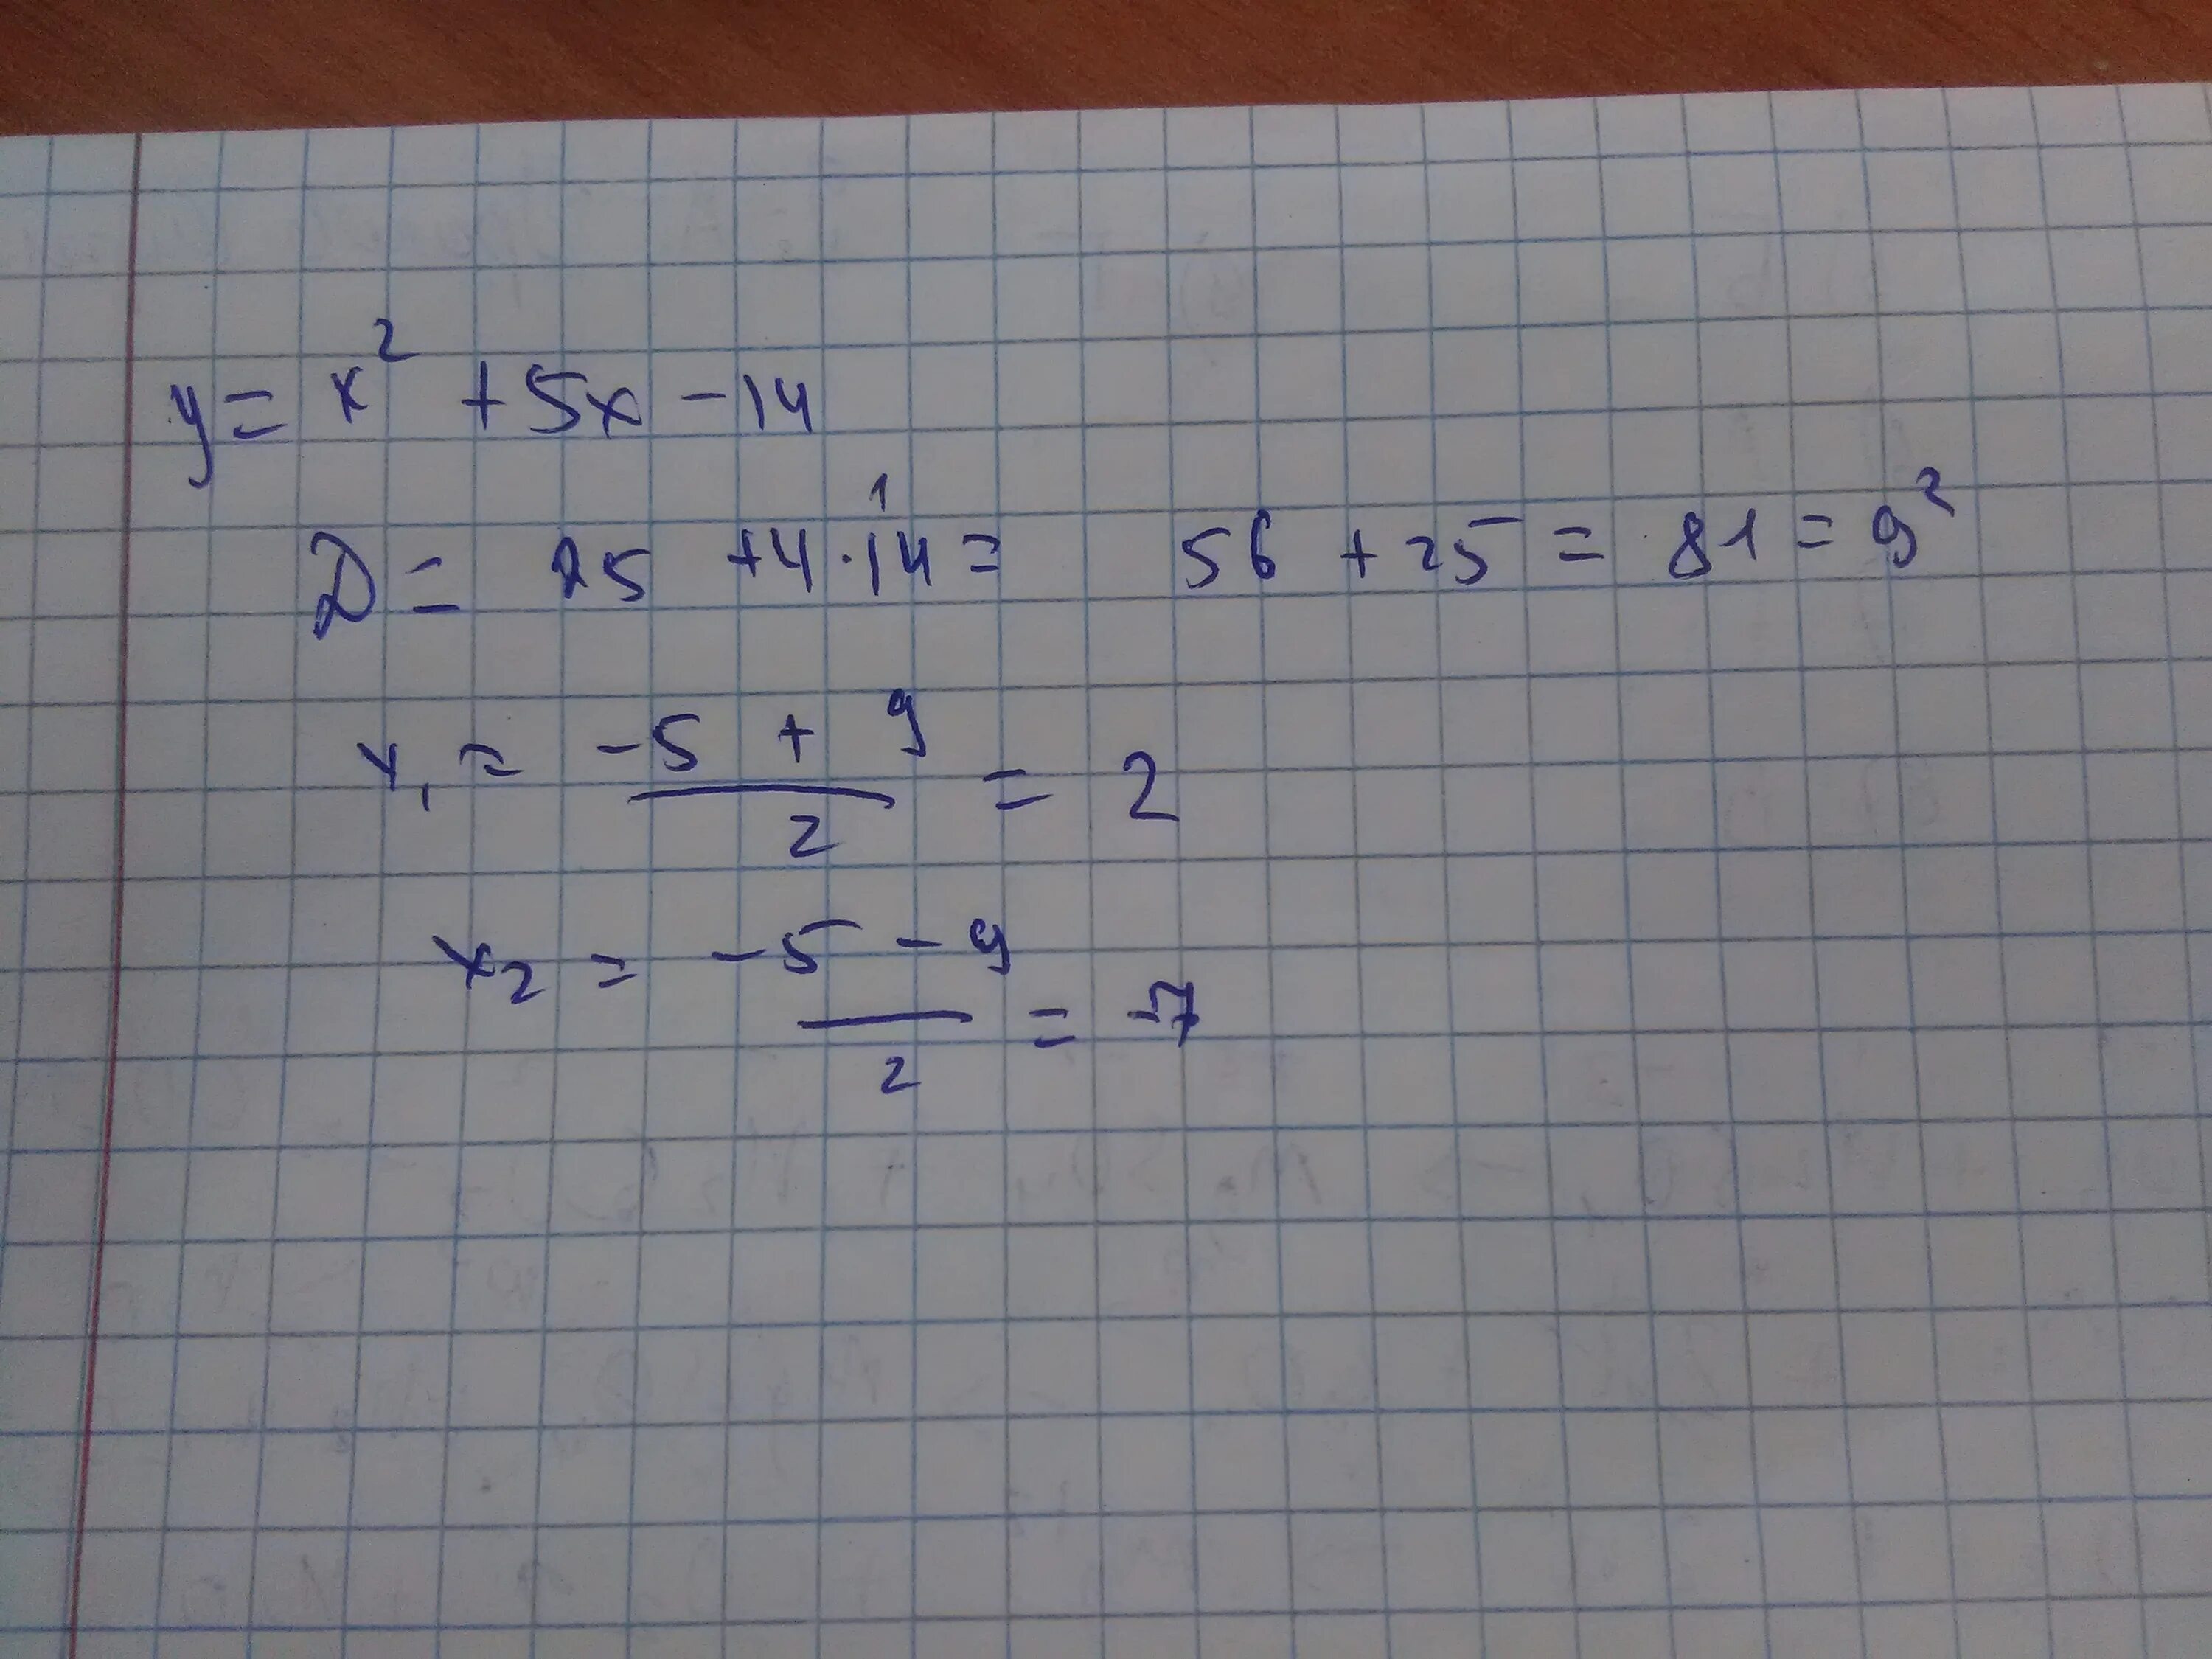 y = x² + 5x − 14
D = 25 + 4 · 14 = 56 + 25 = 81 = 9²
x₁ = (−5 + 9)/2 = 2
x₂ = (−5 − 9)/2 = −7